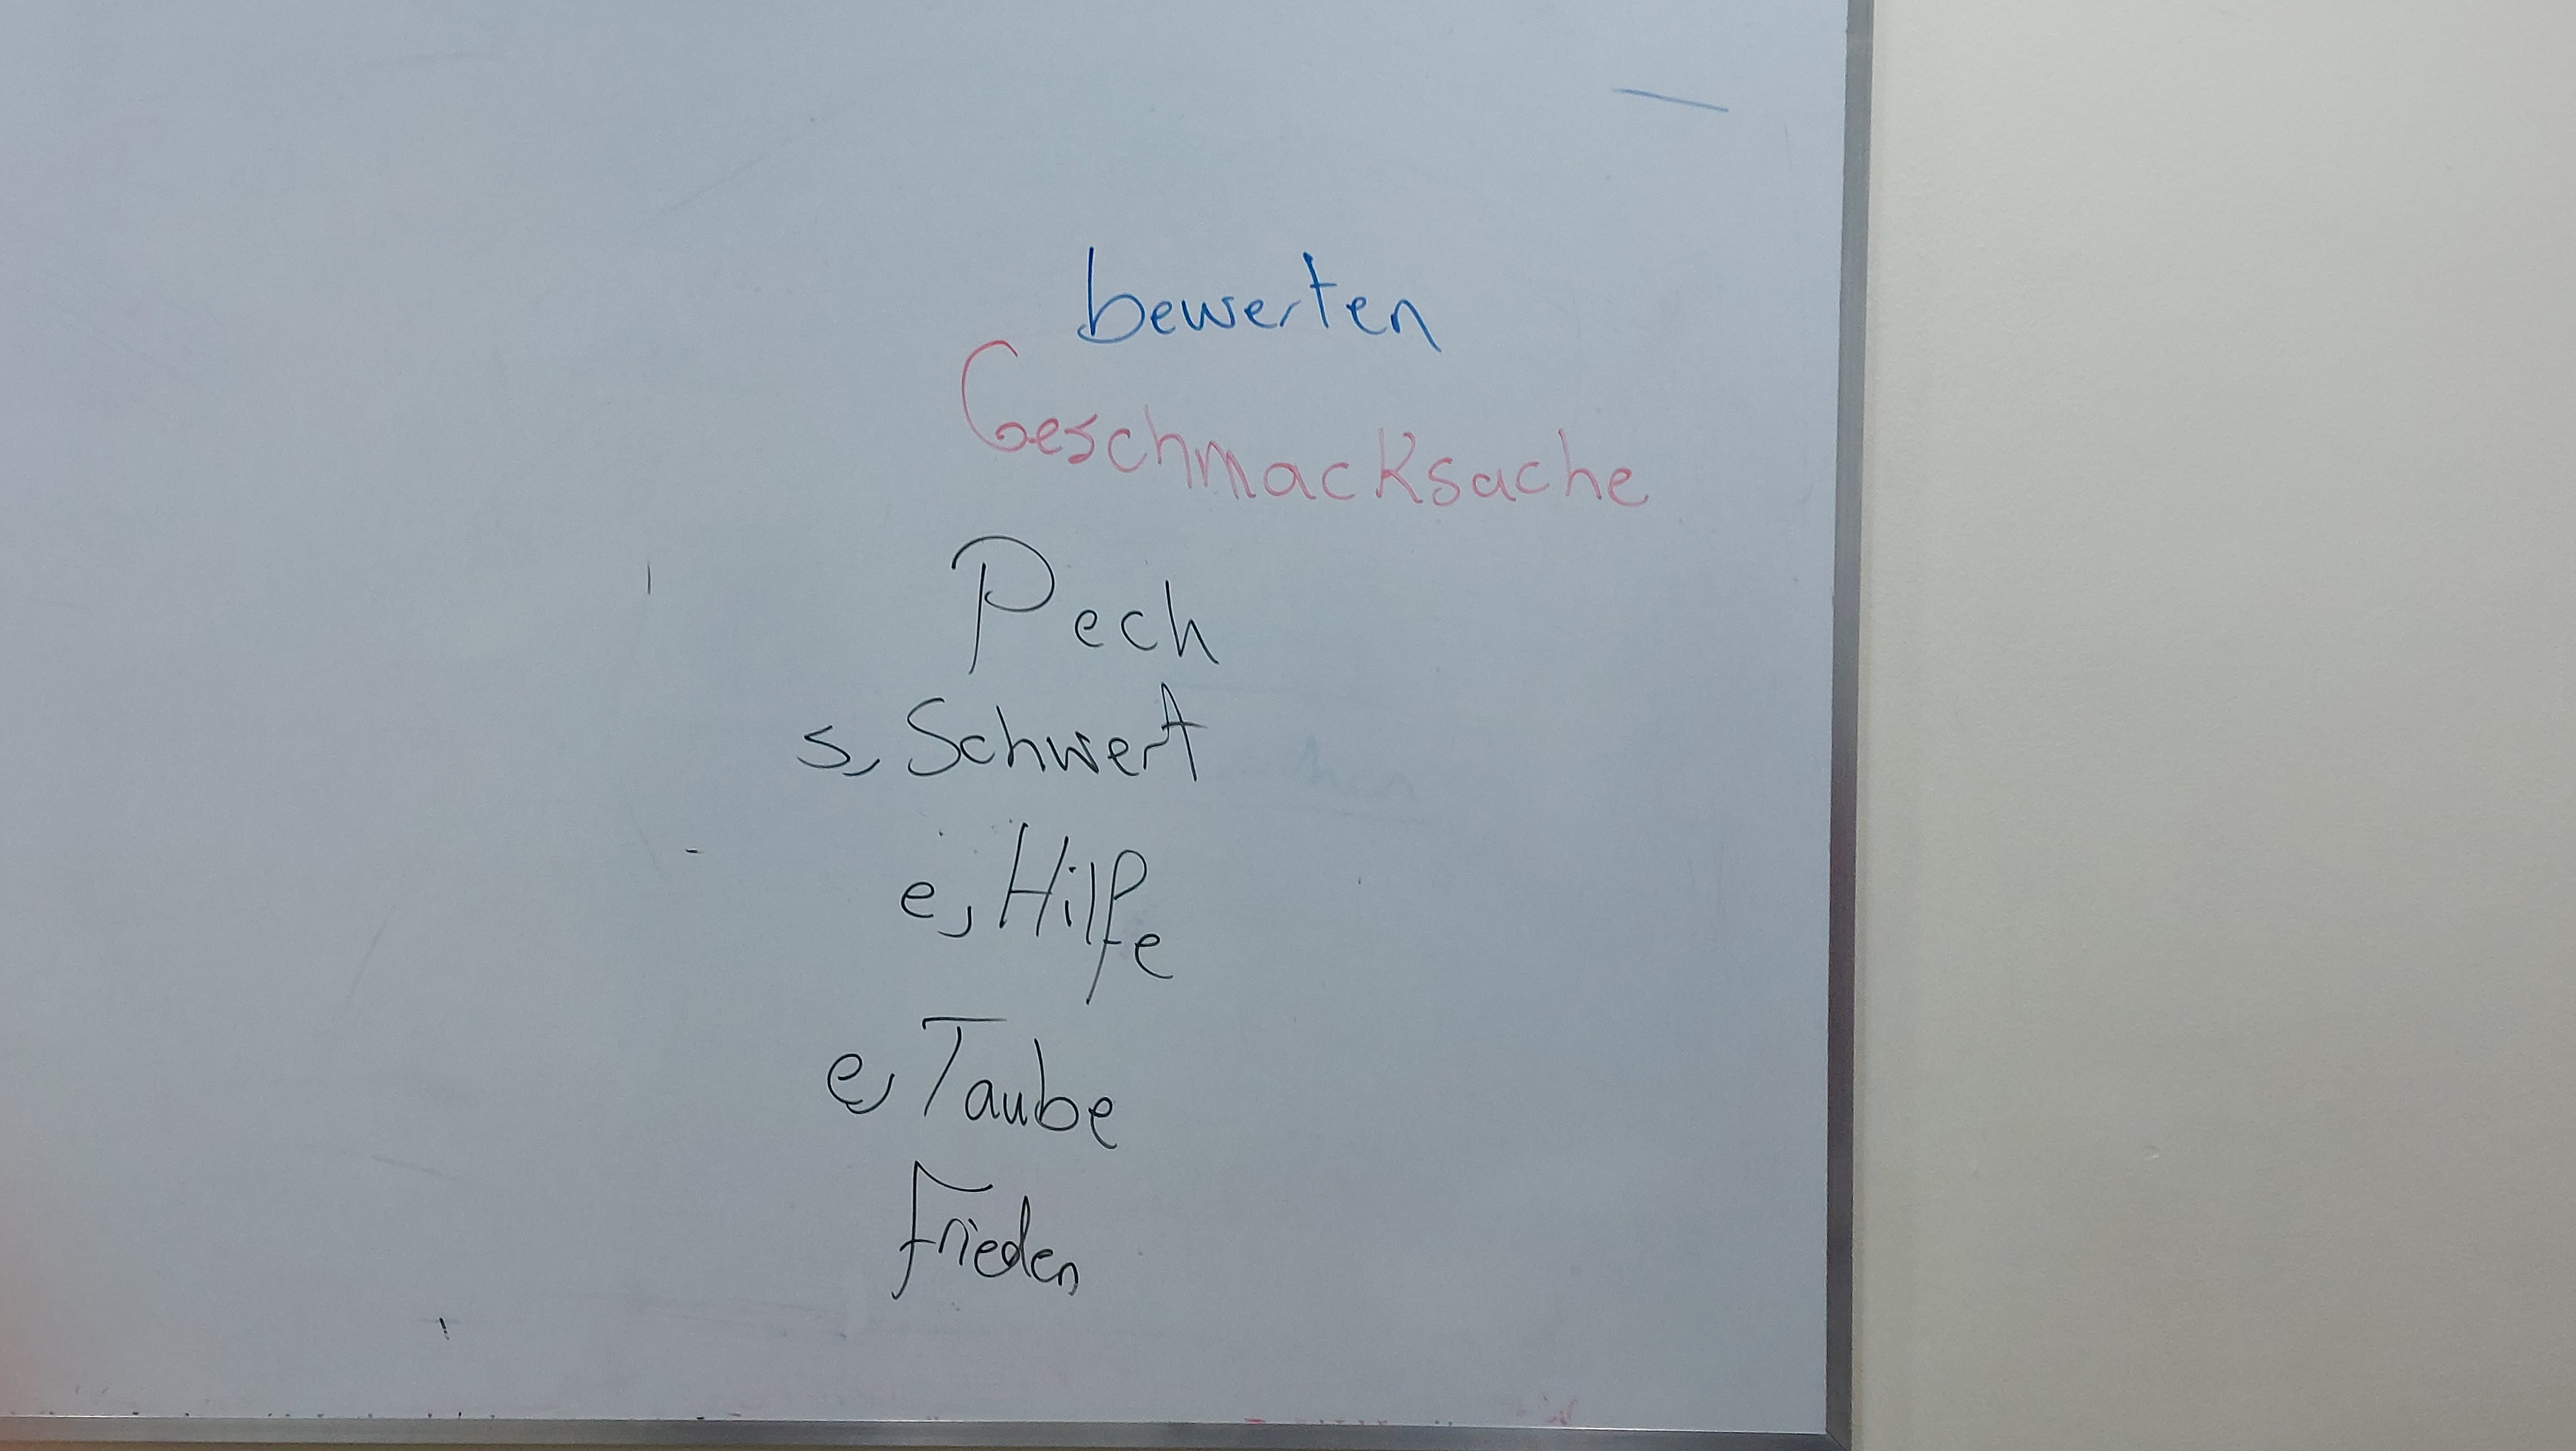 bewerten
Geschmacksache
Pech
s, Schwert
e, Hilfe
e, Taube
Frieden